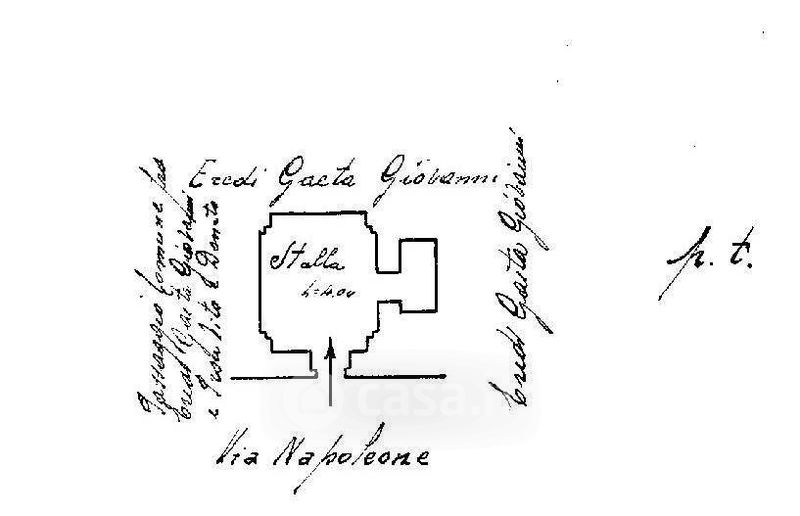 Eredi Gaeta Giovanni
Passaggio Comune fra
Eredi Gaeta Giovanni
e Vito e Donato
Stalla
h=4,00
Eredi Gaeta Giovanni
p. t.
casa.it
Via Napoleone